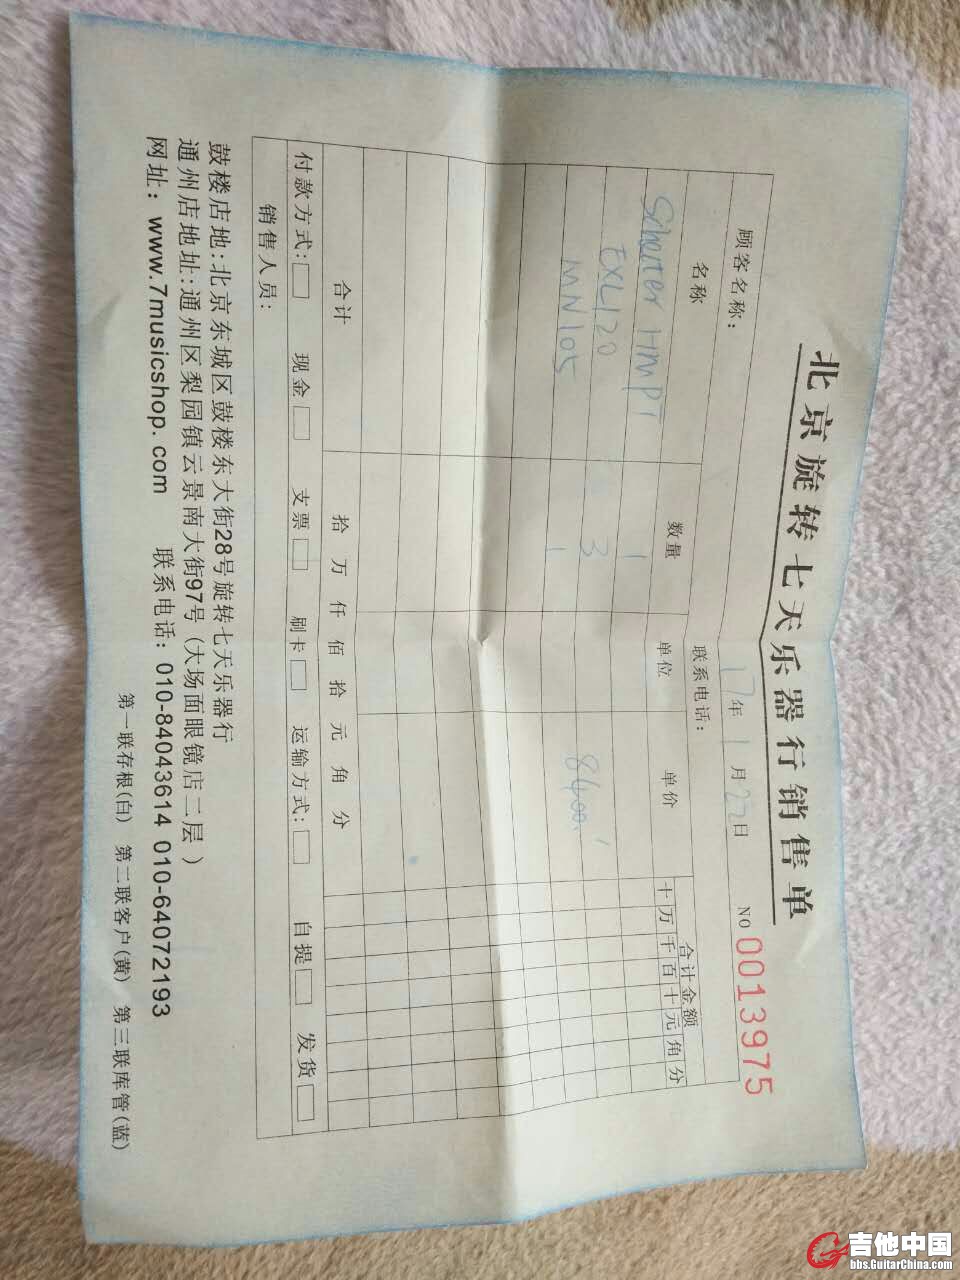 北京旋转七天乐器行销售单
17年1月22日 NO 0013975
顾客名称： 联系电话：
名称 数量 单位 单价 合计金额
十 万 千 百 十 元 角 分
Schecter HMPT 1
EXL120 3 8400
MN105 1
合计 拾 万 仟 佰 拾 元 角 分
付款方式：□ 现金□ 支票□ 刷卡□ 运输方式：□ 自提□ 发货□
销售人员：
鼓楼店地:北京东城区鼓楼东大街28号旋转七天乐器行
通州店地址:通州区梨园镇云景南大街97号(大场面眼镜店二层)
网址：www.7musicshop.com 联系电话：010-84043614 010-64072193
第一联存根(白) 第二联客户(黄) 第三联库管(蓝)
吉他中国
bbs.GuitarChina.com